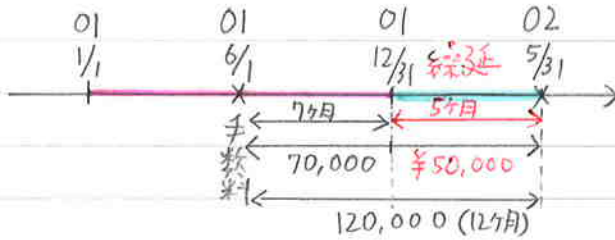 01 01 01 02
1/1 6/1 12/31 繰延 5/31
7ケ月 5ケ月
手数料
70,000 ¥50,000
120,000 (12ケ月)